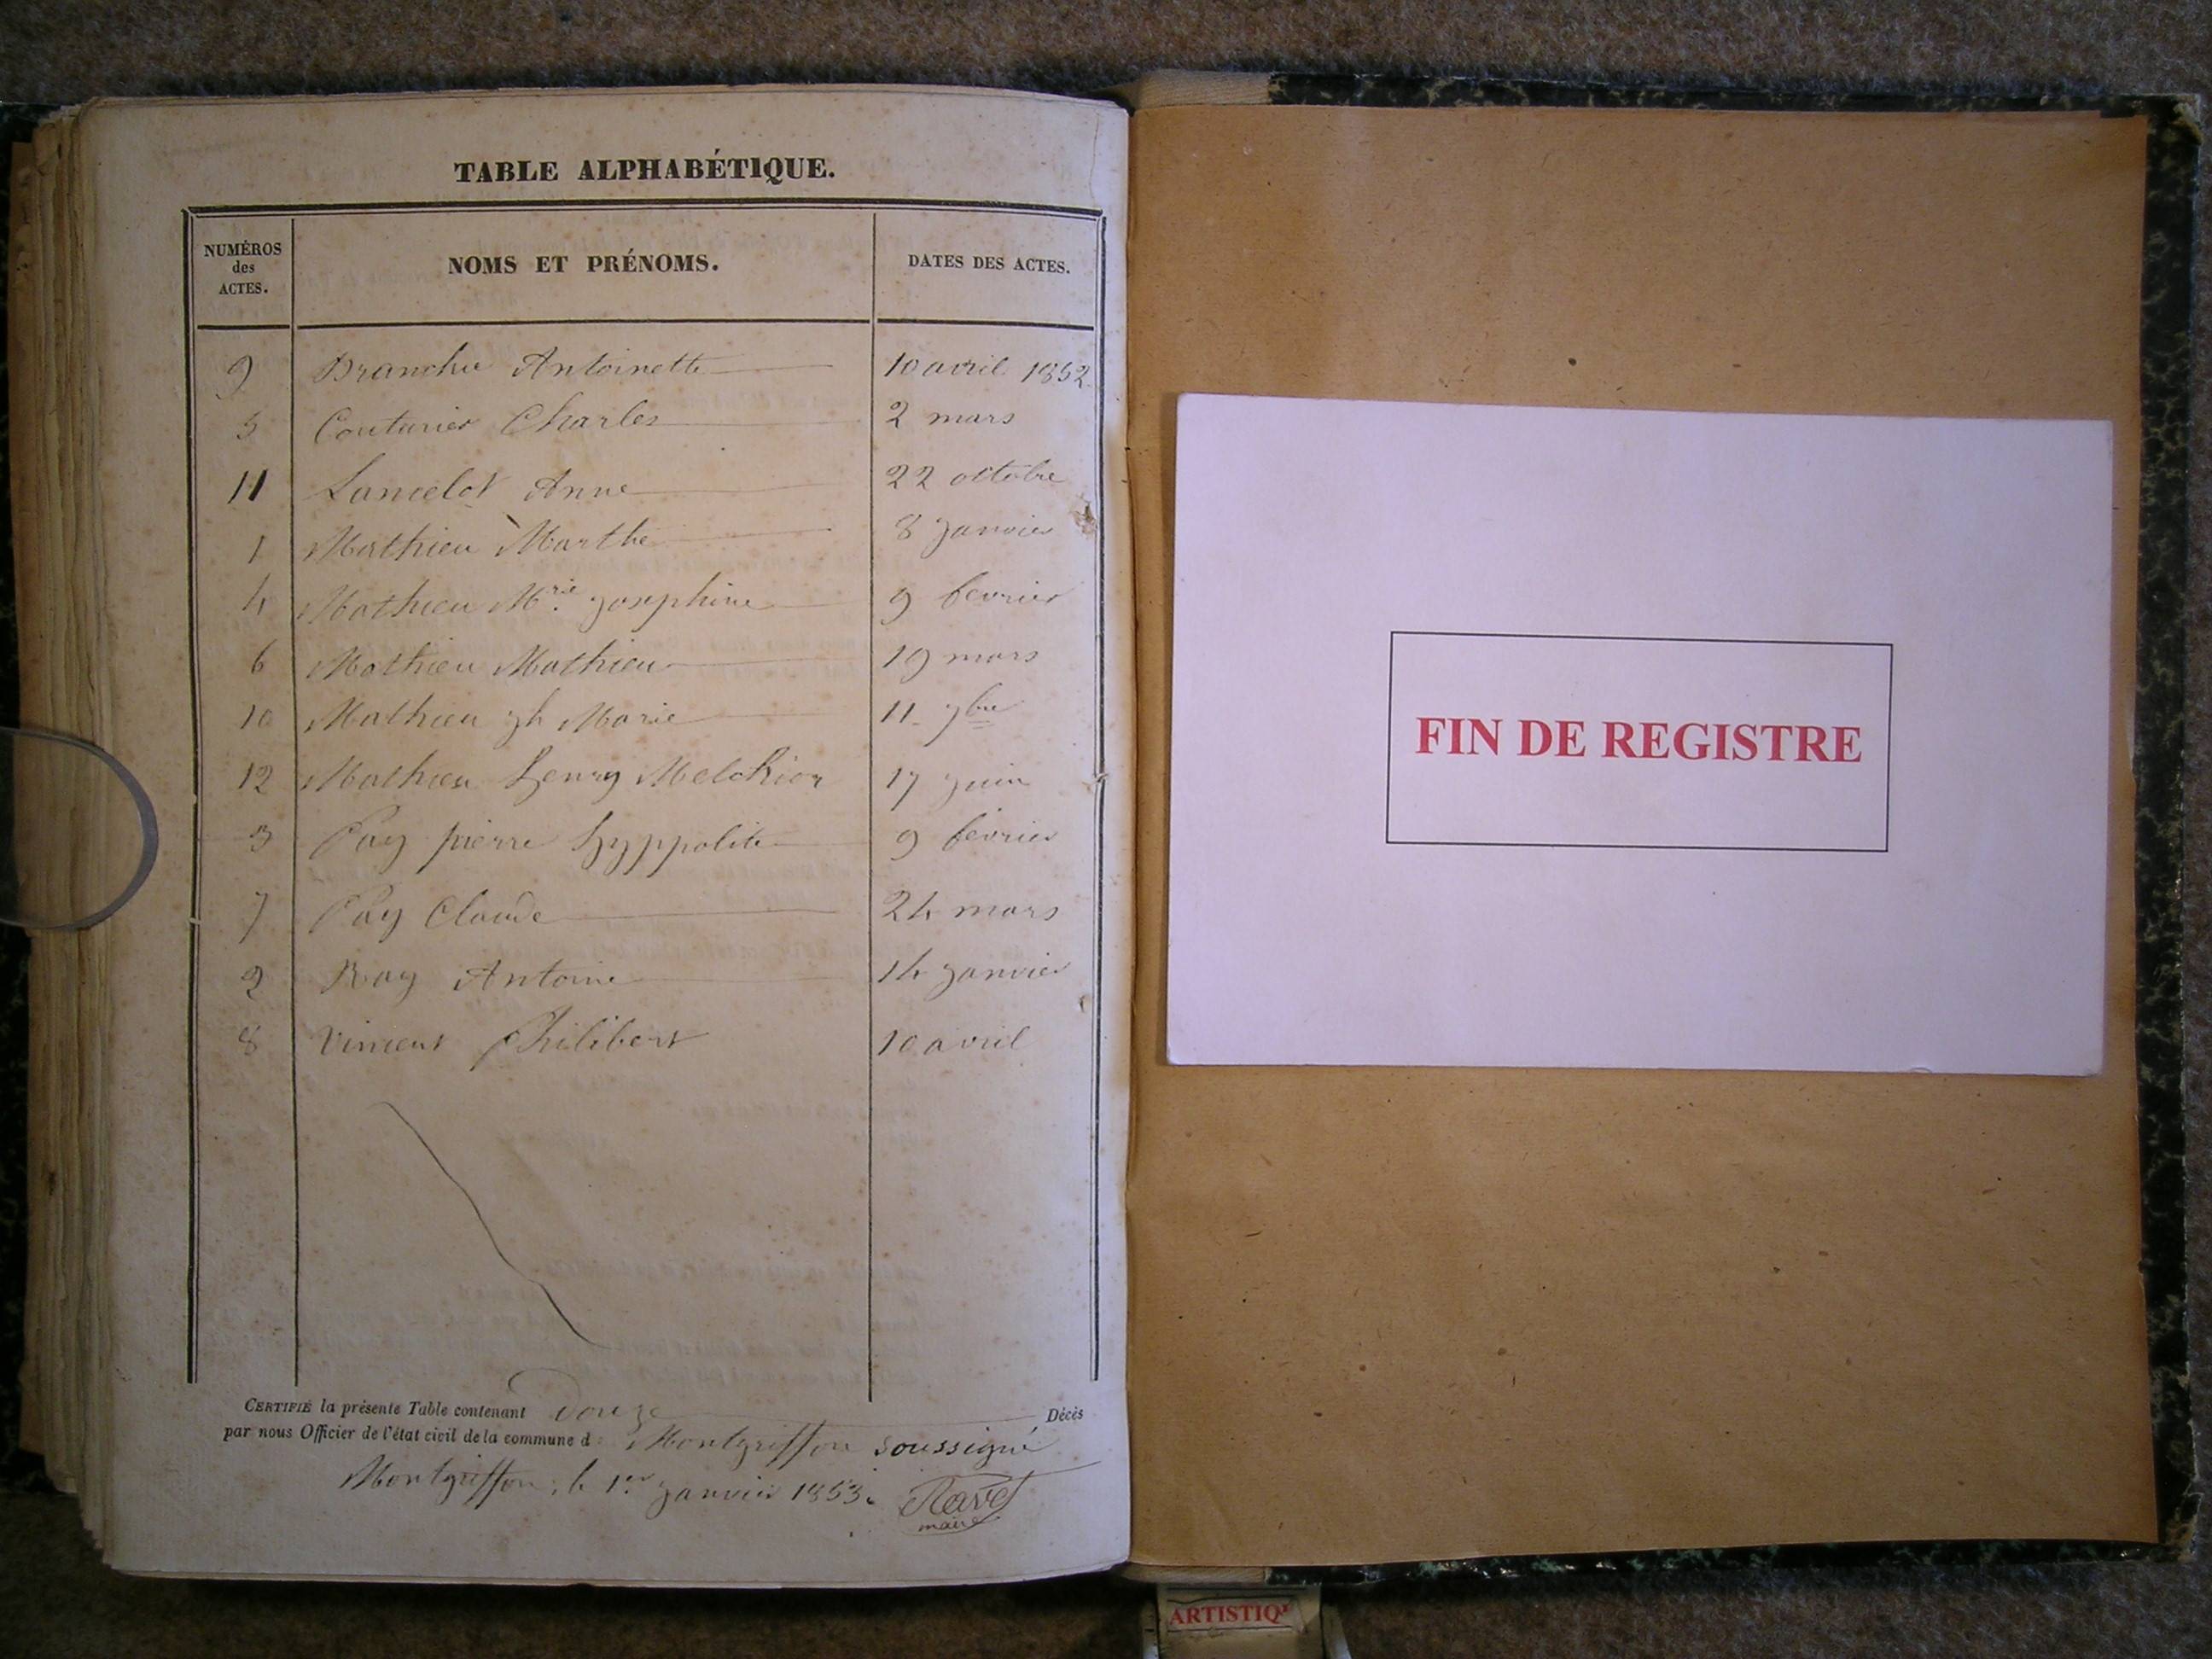 TABLE ALPHABÉTIQUE.
NUMÉROS des ACTES. NOMS ET PRÉNOMS. DATES DES ACTES.
9 Branchu Antoinette 10 avril 1852
5 Couturier Charles 2 mars
11 Lancelot Anne 22 octobre
1 Mathieu Marthe 8 janvier
4 Mathieu Mrie josephine 9 fevrier
6 Mathieu Mathieu 19 mars
10 Mathieu jh Marie 11 7bre
12 Mathieu henry Melchior 17 juin
3 Pay pierre hyppolite 9 fevrier
7 Pay Claude 24 mars
2 Ray Antoine 14 janvier
8 Vincent Philibert 10 avril
CERTIFIÉ la présente Table contenant Douze Décès
par nous Officier de l'état civil de la commune d Montgriffon soussigné
Montgriffon, le 1er janvier 1853.
Ravet
maire
FIN DE REGISTRE
ARTISTIQ